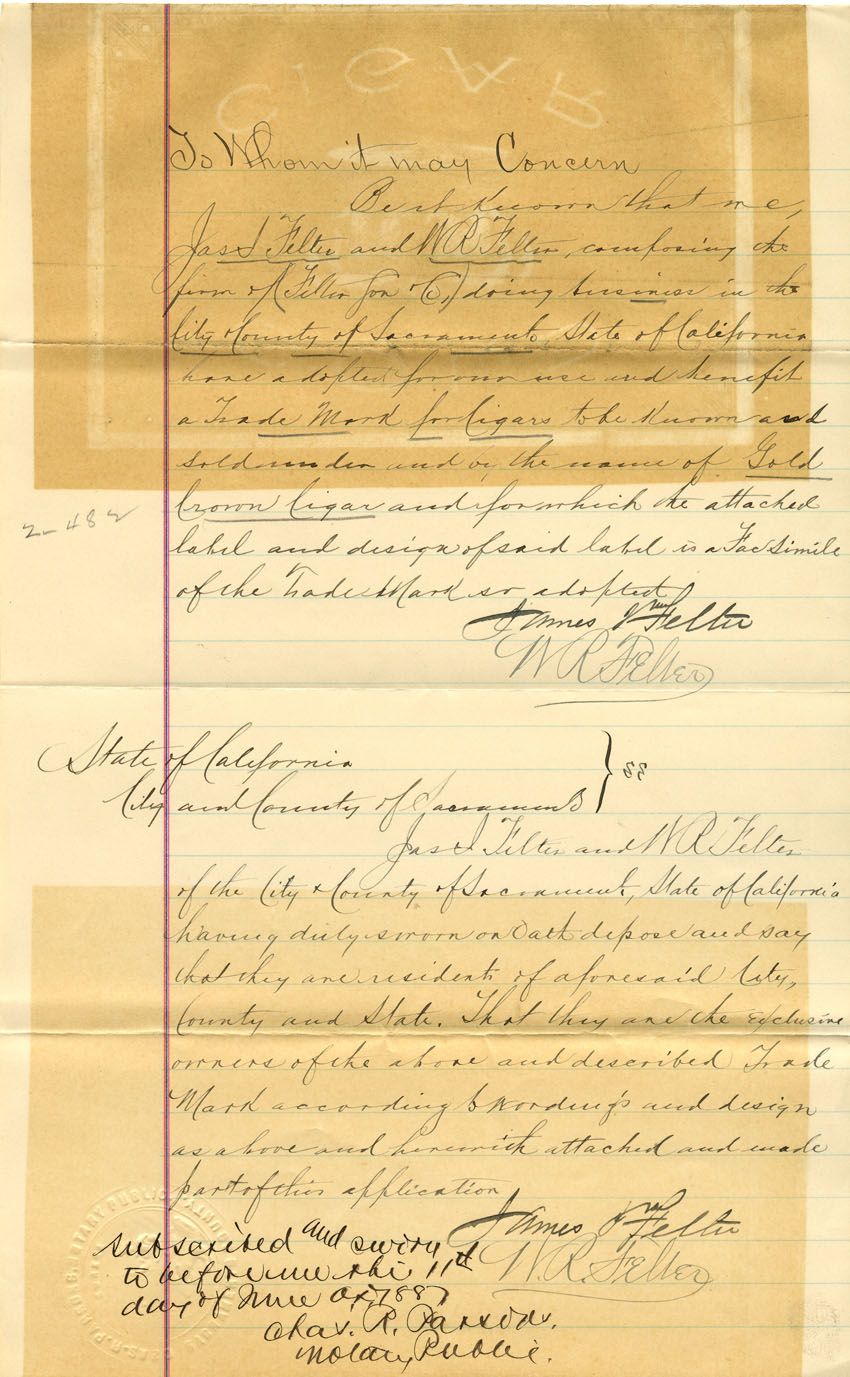 CIGAR
To Whom it may Concern
Be it Known that we,
Jas I Felter and W R Felter, composing the
firm of (Felter Son & Co,) doing business in the
City & County of Sacramento, State of California
have adopted for our use and benefit
a Trade Mark for Cigars to be Known and
sold under and by the name of Gold
Crown Cigar and for which the attached
label and design of said label is a Fac Simile
of the Trade Mark so adopted
James Felter
W R Felter
2-482
State of California
City and County of Sacramento } SS
Jas I Felter and W R Felter
of the City & County of Sacramento, State of California
having duly sworn on Oath depose and say
that they are residents of aforesaid City,
County and State. That they are the exclusive
owners of the above and described Trade
Mark according to wordings and design
as above and herewith attached and made
part of this application
James Felter
W. R. Felter
subscribed and sworn
to before me this 11th
day of June AD 1887
Chas. R. Parsons.
Notary Public.